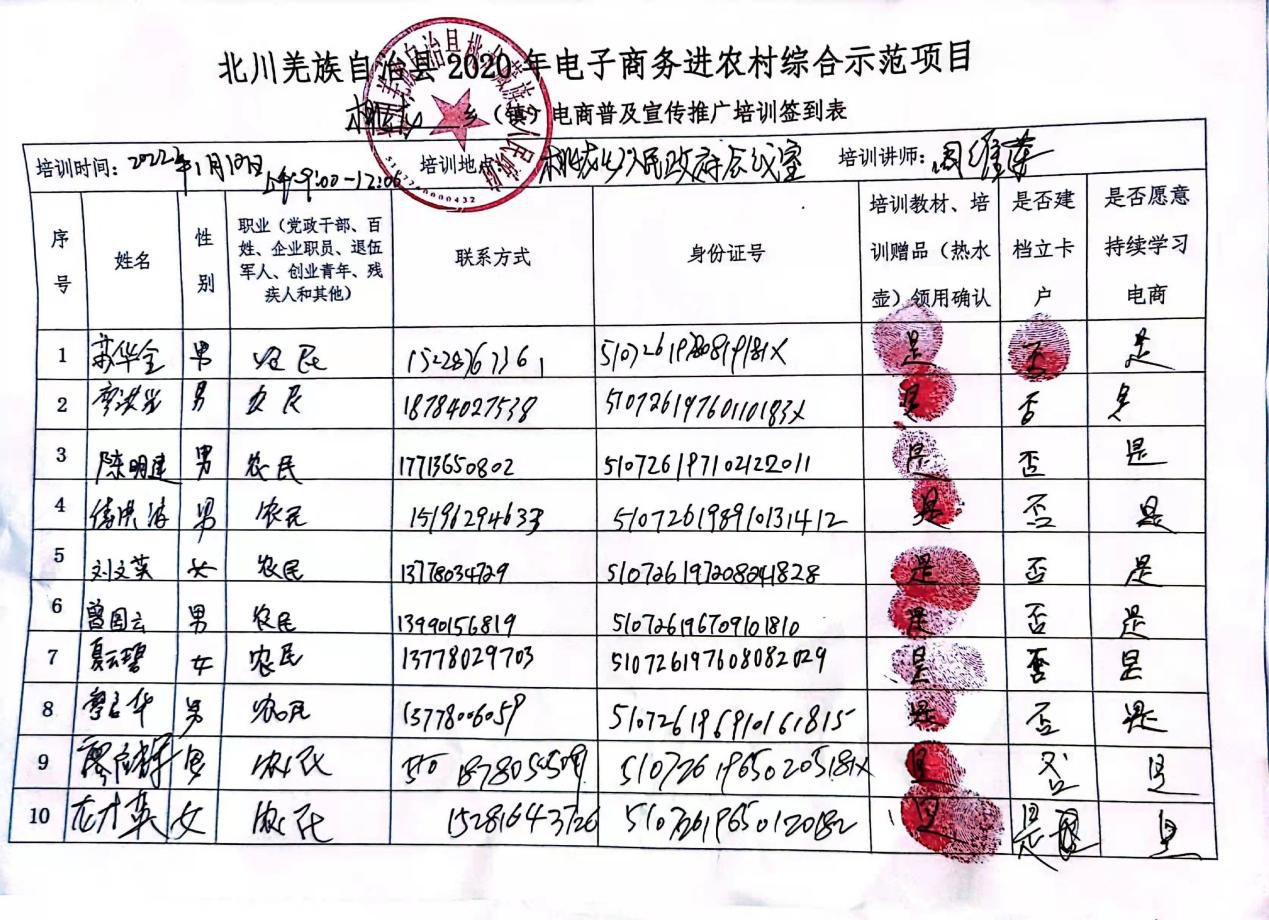 北川羌族自治县 2020 年电子商务进农村综合示范项目
桃龙 乡（镇）电商普及宣传推广培训签到表
培训时间：2022年1月10日 上午9:00-12:00 培训地点 桃龙乡人民政府会议室 培训讲师：周
序号 姓名 性别 职业（党政干部、百姓、企业职员、退伍军人、创业青年、残疾人和其他） 联系方式 身份证号 培训教材、培训赠品（热水壶）领用确认 是否建档立卡户 是否愿意持续学习电商
1 华全 男 农民 是 否 是
2 男 农民 18784027538 51072619760110183X 是 否 是
3 陈明建 男 农民 17713650802 510726197102122011 是 否 是
4 男 农民 15196294633 510726198910131412 是 否 是
5 刘文英 女 农民 13778034729 510726197208241828 是 否 是
6 曾国云 男 农民 13990156819 510726196709101810 是 否 是
7 夏云碧 女 农民 13778029703 510726197608082029 是 否 是
8 华 男 农民 1377806059 510726196910161815 是 否 是
9 廖 男 农民 51072619650205181X 是 否 是
10 才英 女 农民 15281643726 是 是 是